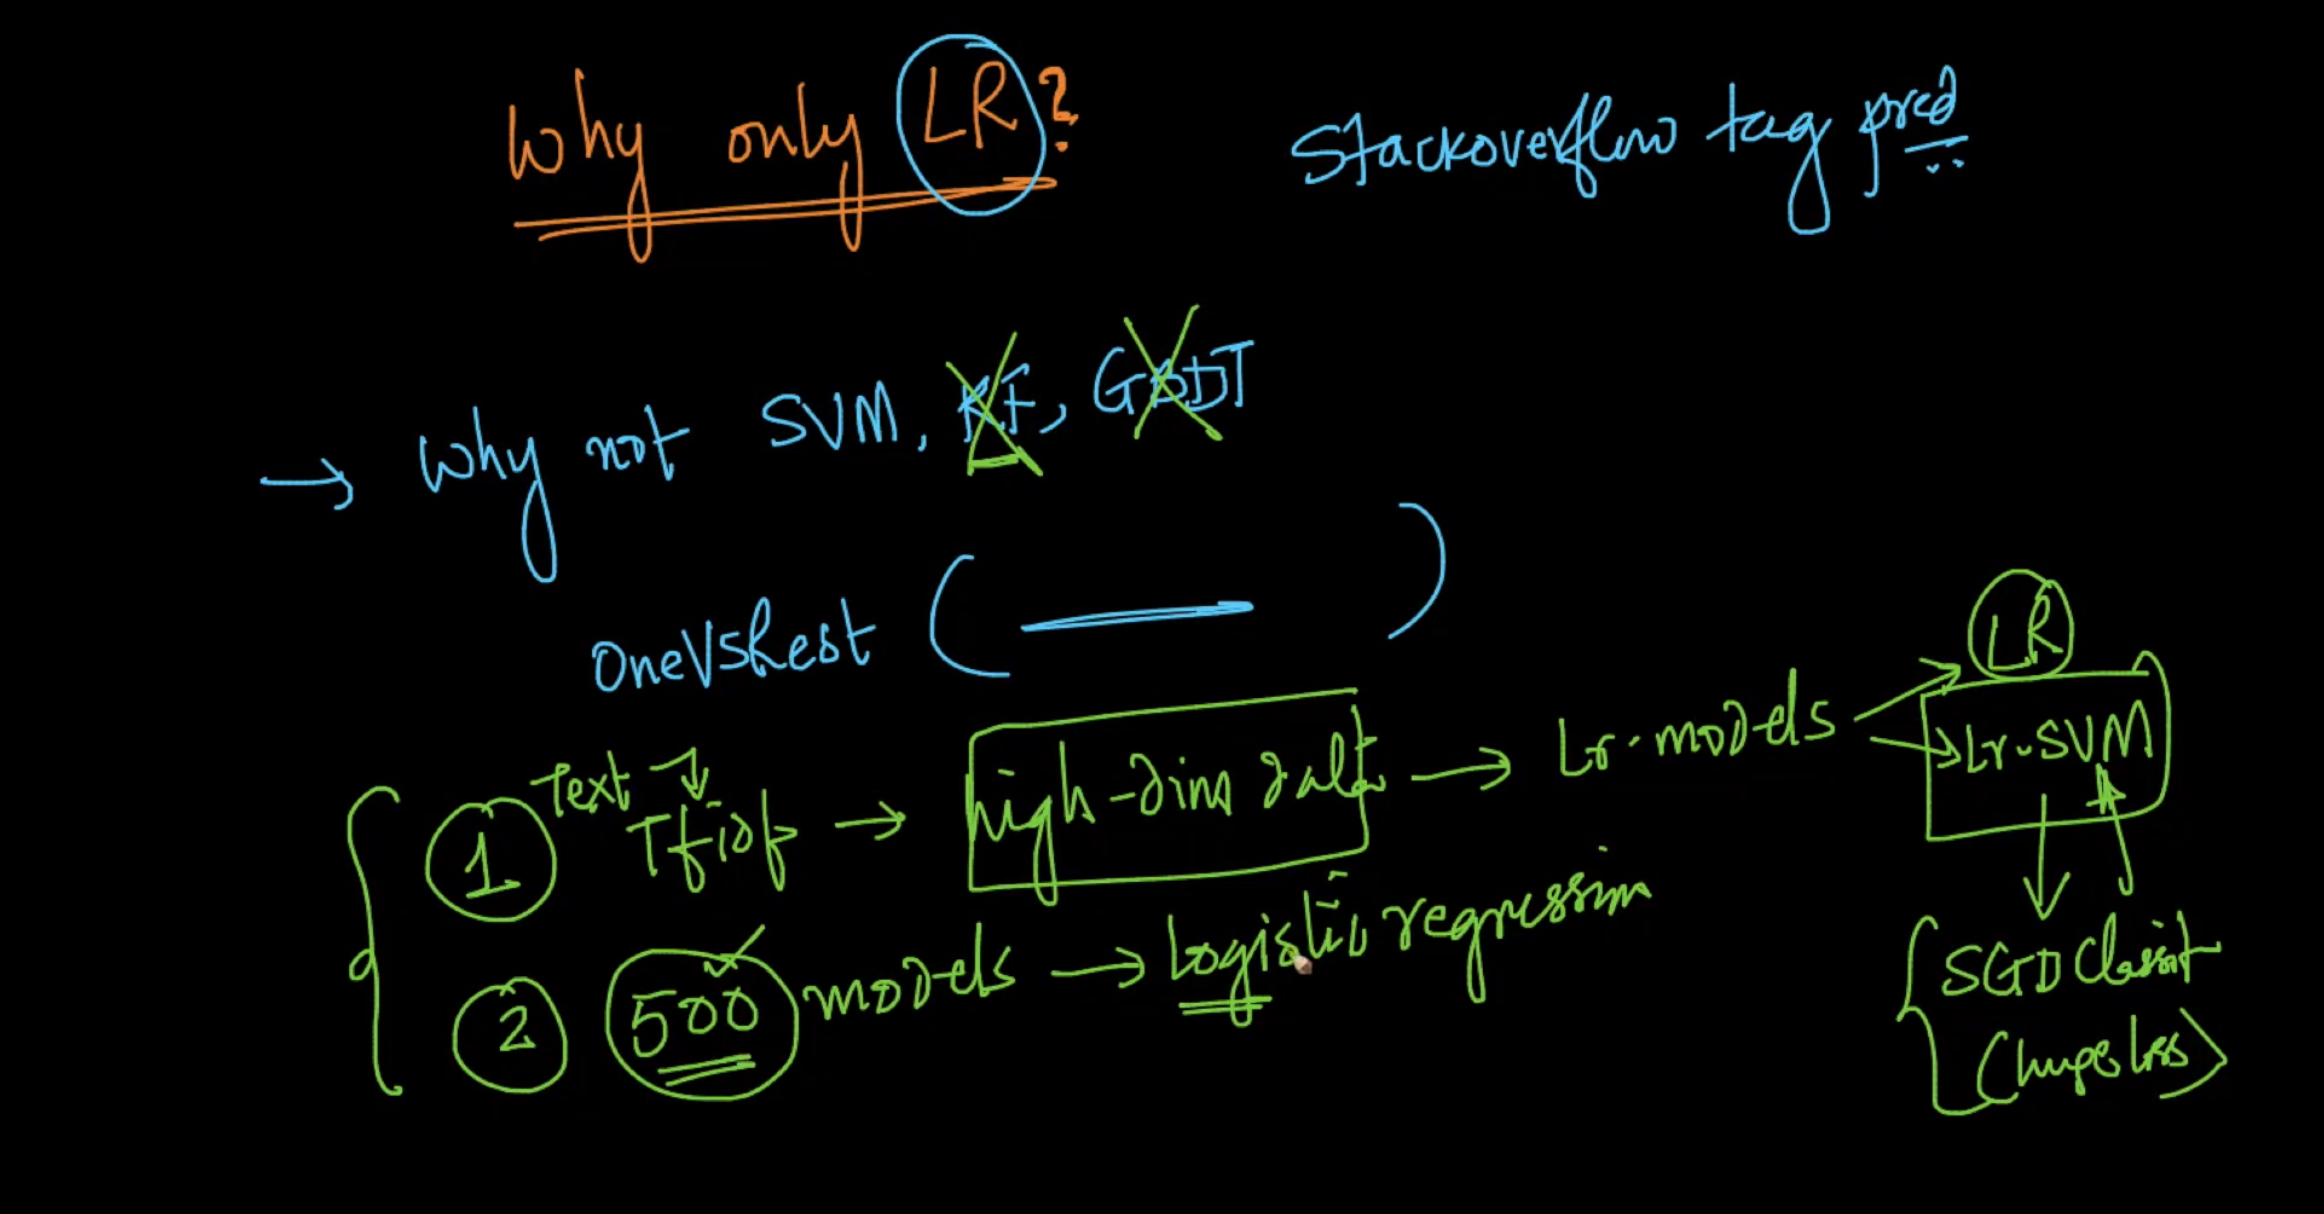 Why only LR?
Stackoverflow tag pred
→ Why not SVM, RF, GBDT
OneVsRest ( )
1 Text Tfidf → high-dim data → Lr. models → LR
→ Lr. SVM
2 500 models → Logistic regression
SGD Classif
(hinge loss)